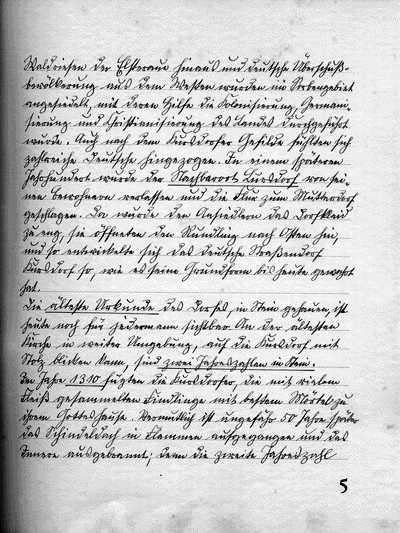 Waldriesen der Elsteraue hinaus und deutsche Überschuß-
bevölkerung aus dem Westen wurden im Sorbengebiet
angesiedelt, mit deren Hilfe die Kolonisierung, Germani-
sierung und Christianisierung des Landes durchgeführt
wurde. Auch nach dem Kursdorfer Gefilde fühlten sich
zahlreiche Deutsche hingezogen. In einem späteren
Jahrhundert wurde der Nachbarort von sei-
nen Bewohnern verlassen und die Flur zum Mutterdorf
geschlagen. Da wurde den Ansiedlern das Dorfkleid
zu eng, sie öffneten den Rundling nach Osten hin,
und so entwickelte sich das deutsche Straßendorf
Kursdorf so, wie es seine Grundform bis heute gewahrt
hat.
Die älteste Urkunde des Dorfes, in Stein gehauen, ist
heute noch für jedermann sichtbar. An der ältesten
Kirche in weiter Umgebung, auf die Kursdorf mit
Stolz blicken kann, sind zwei Jahreszahlen in Stein.
Im Jahre 1310 fügten die Kursdorfer, die mit vielem
Fleiß gesammelten Findlinge mit bestem Mörtel zu
ihrem Gotteshause. Vermutlich ist ungefähr 50 Jahre später
das Schindeldach in Flammen aufgegangen und das
Innere ausgebrannt; denn die zweite Jahreszahl
5